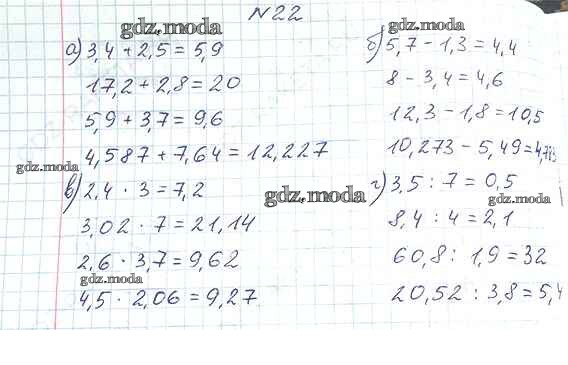 №22
gdz.moda
gdz.moda
а) 3,4 + 2,5 = 5,9
17,2 + 2,8 = 20
5,9 + 3,7 = 9,6
4,587 + 7,64 = 12,227
б) 5,7 - 1,3 = 4,4
8 - 3,4 = 4,6
12,3 - 1,8 = 10,5
10,273 - 5,49 = 4,783
gdz.moda
в) 2,4 · 3 = 7,2
3,02 · 7 = 21,14
2,6 · 3,7 = 9,62
gdz.moda
4,5 · 2,06 = 9,27
gdz.moda
г) 3,5 : 7 = 0,5
gdz.moda
8,4 : 4 = 2,1
60,8 : 1,9 = 32
20,52 : 3,8 = 5,4